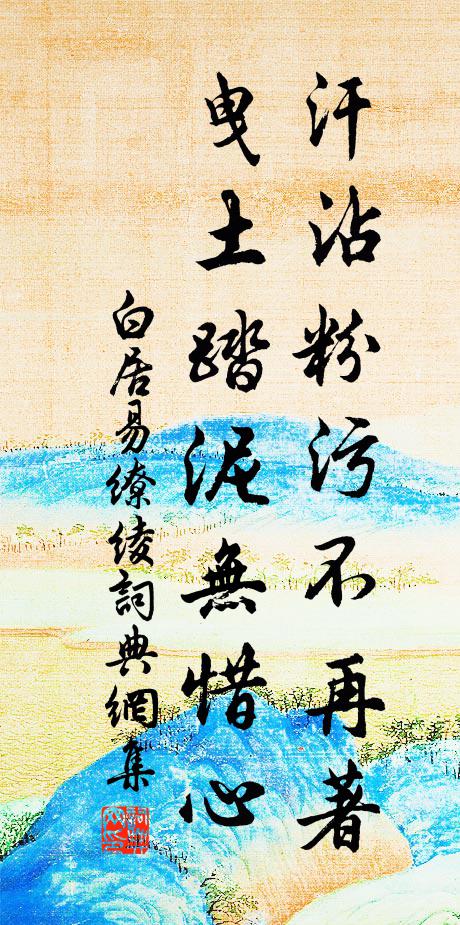 汗沾粉污不再著
曳土踏泥無惜心
白居易繚綾詞典網集